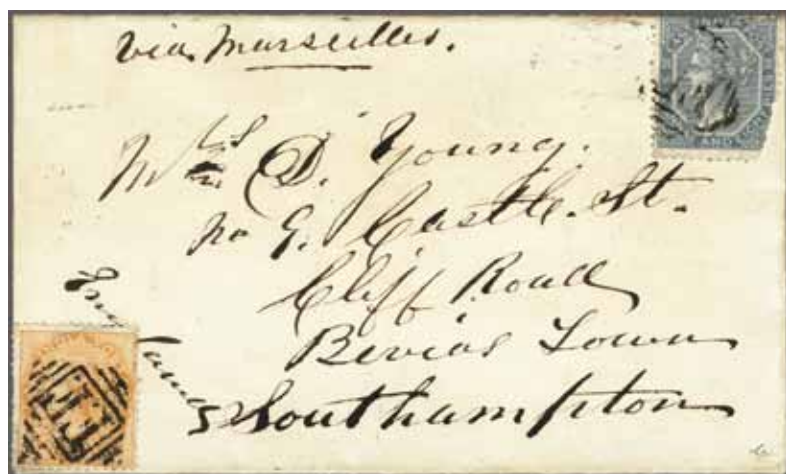 via Marseilles.
Mrs D. Young.
No 9. Castle. St.
Cliff Road
Bevias Town
Southampton
England
AND